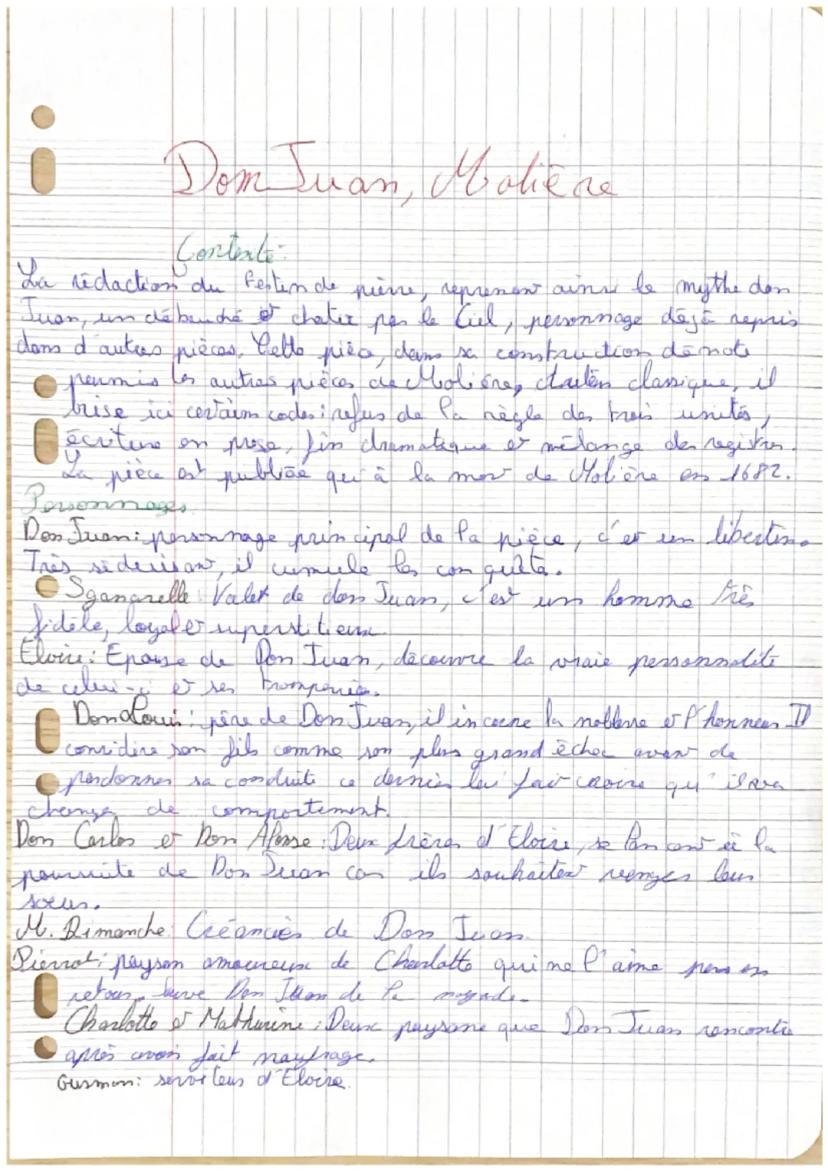 Dom Juan, Molière
Contexte:
La rédaction du Festin de pierre, reprenant ainsi le mythe don
Juan, un débauché et chatié par le Ciel, personnage déjà repris
dans d'autres pièces. Cette pièce, dans sa construction dénote
parmis les autres pièces de Molière, classique, il
brise ici certains codes: refus de la règle des trois unités,
écriture en prose, fin dramatique et mélange des registres.
La pièce est publiée qu'à la mort de Molière en 1682.
Personnages
Don Juan: personnage principal de la pièce, c'est un libertin.
Très séduisant, il cumule les conquêtes.
Sganarelle: Valet de don Juan, c'est un homme très
fidèle, loyal et superstitieux
Elvire: Epouse de Don Juan, découvre la vraie personnalité
de celui-ci et ses tromperies.
Don Louis: père de Don Juan, il incarne la noblesse et l'honneur Il
considère son fils comme son plus grand échec avant de
pardonner sa conduite ce dernier lui fait croire qu'il va
changer de comportement.
Don Carlos et Don Alonse: Deux frères d'Elvire, se lancent à la
poursuite de Don Juan car ils souhaitent venger leur
sœur.
M. Dimanche: Créancier de Don Juan
Pierrot: paysan amoureux de Charlotte qui ne l'aime pas en
retour, sauve Don Juan de la noyade.
Charlotte et Mathurine: Deux paysane que Don Juan rencontre
après avoir fait naufrage.
Gusman: serviteur d'Elvire.